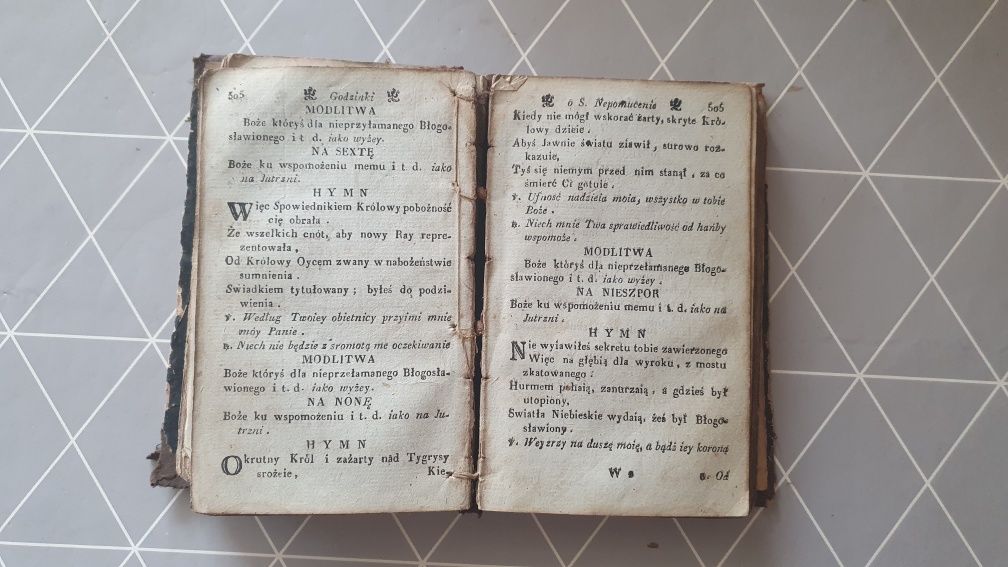 505 Godzinki
MODLITWA
Boże któryś dla nieprzyłamanego Błogo-
sławionego i t d. iako wyżey.
NA SEXTĘ
Boże ku wspomożeniu memu i t. d. iako
na Jutrzni.
HYMN
Więc Spowiednikiem Królowy pobożność
cię obrała.
Że wszelkich cnót, aby nowy Ray repre-
zentowała,
Od Królowy Oycem zwany w nabożeństwie
sumnienia.
Swiadkiem tytułowany; byłeś do podzi-
wienia.
℣. Według Twoiey obietnicy przyimi mnie
móy Panie.
℟. Niech nie będzie z sromotą me oczekiwanie
MODLITWA
Boże któryś dla nieprzełamanego Błogosła-
wionego i t. d. iako wyżey.
NA NONĘ
Boże ku wspomożeniu i t. d. iako na Ju-
trzni.
HYMN
Okrutny Król i zażarty nad Tygrysy
srożeie, Kie-
o S. Nepomucenie 505
Kiedy nie mógł wskorać żarty, skryte Kró-
lowy dzieie.
Abyś Jawnie światu ziawił, surowo roz-
kazuie,
Tyś się niemym przed nim stanął, za co
śmierć Ci gotuie.
℣. Ufność nadzieia moia, wszystko w tobie
Boże.
℟. Niech mnie Twa sprawiedliwość od hańby
wspomoże.
MODLITWA
Boże któryś dla nieprzełamanego Błogo-
sławionego i t. d. iako wyżey.
NA NIESZPOR
Boże ku wspomożeniu memu i t. d. iako na
Jutrzni.
HYMN
Nie wyiawiłeś sekretu tobie zawierzonego
Więc na głębią dla wyroku, z mostu
zkatowanego:
Hurmem pchaią, zanurzaią, a gdzieś był
utopiony,
Swiatła Niebieskie wydaią, żeś był Błogo-
sławiony.
℣. Weyzrzy na duszę moię, a bądź iey koroną
W Od